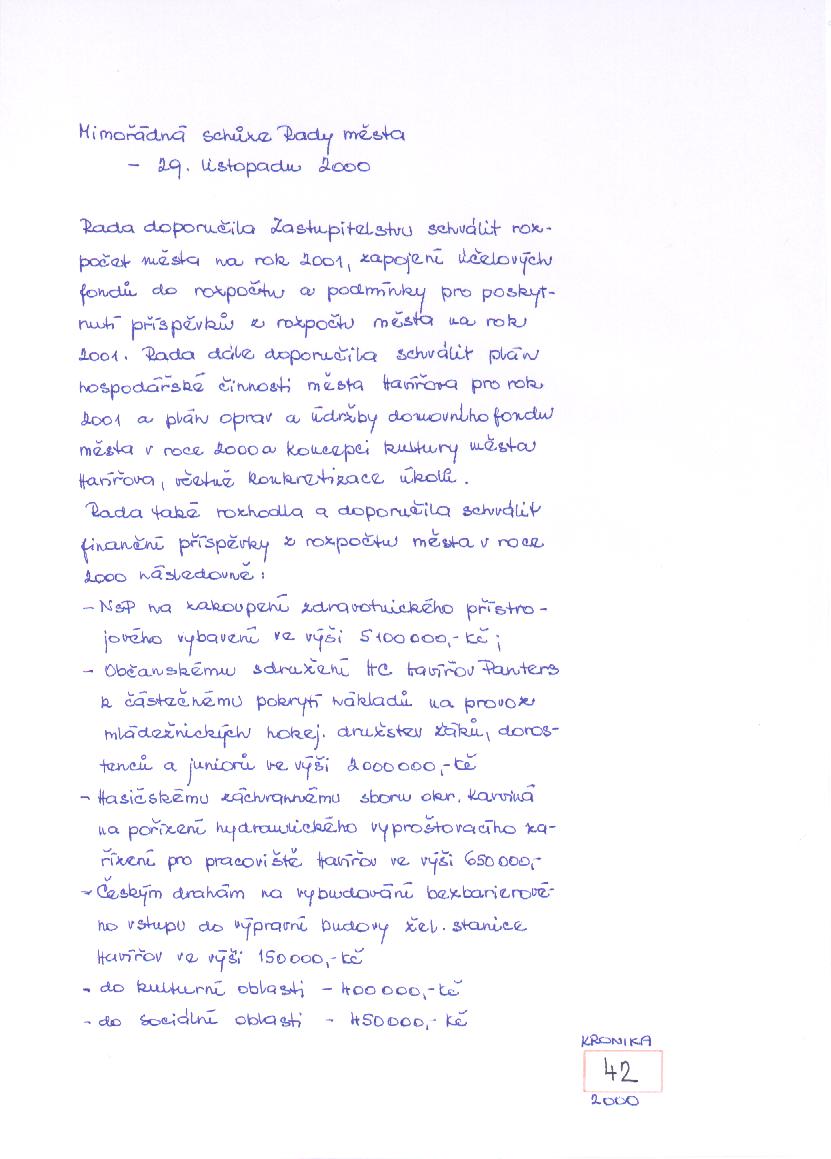 Mimořádná schůze Rady města
- 29. listopadu 2000
Rada doporučila Zastupitelstvu schválit roz-
počet města na rok 2001, zapojení účelových
fondů do rozpočtu a podmínky pro poskyt-
nutí příspěvků z rozpočtu města na rok
2001. Rada dále doporučila schválit plán
hospodářské činnosti města Havířova pro rok
2001 a plán oprav a údržby domovního fondu
města v roce 2000 a koncepci kultury města
Havířova, včetně konkretizace úkolů.
Rada také rozhodla a doporučila schválit
finanční příspěvky z rozpočtu města v roce
2000 následovně:
- NsP na zakoupení zdravotnického přístro-
jového vybavení ve výši 5100000,- Kč;
- Občanskému sdružení HC Havířov Panters
k částečnému pokrytí nákladů na provoz
mládežnických hokej. družstev žáků, doros-
tenců a juniorů ve výši 2000000,- Kč
- Hasičskému záchrannému sboru okr. Karviná
na pořízení hydraulického vyprošťovacího za-
řízení pro pracoviště Havířov ve výši 650000,-
- Českým drahám na vybudování bezbarierové-
ho vstupu do výpravní budovy žel. stanice
Havířov ve výši 150000,- Kč
- do kulturní oblasti - 400 000,- Kč
- do sociální oblasti - 450000,- Kč
KRONIKA
42
2000